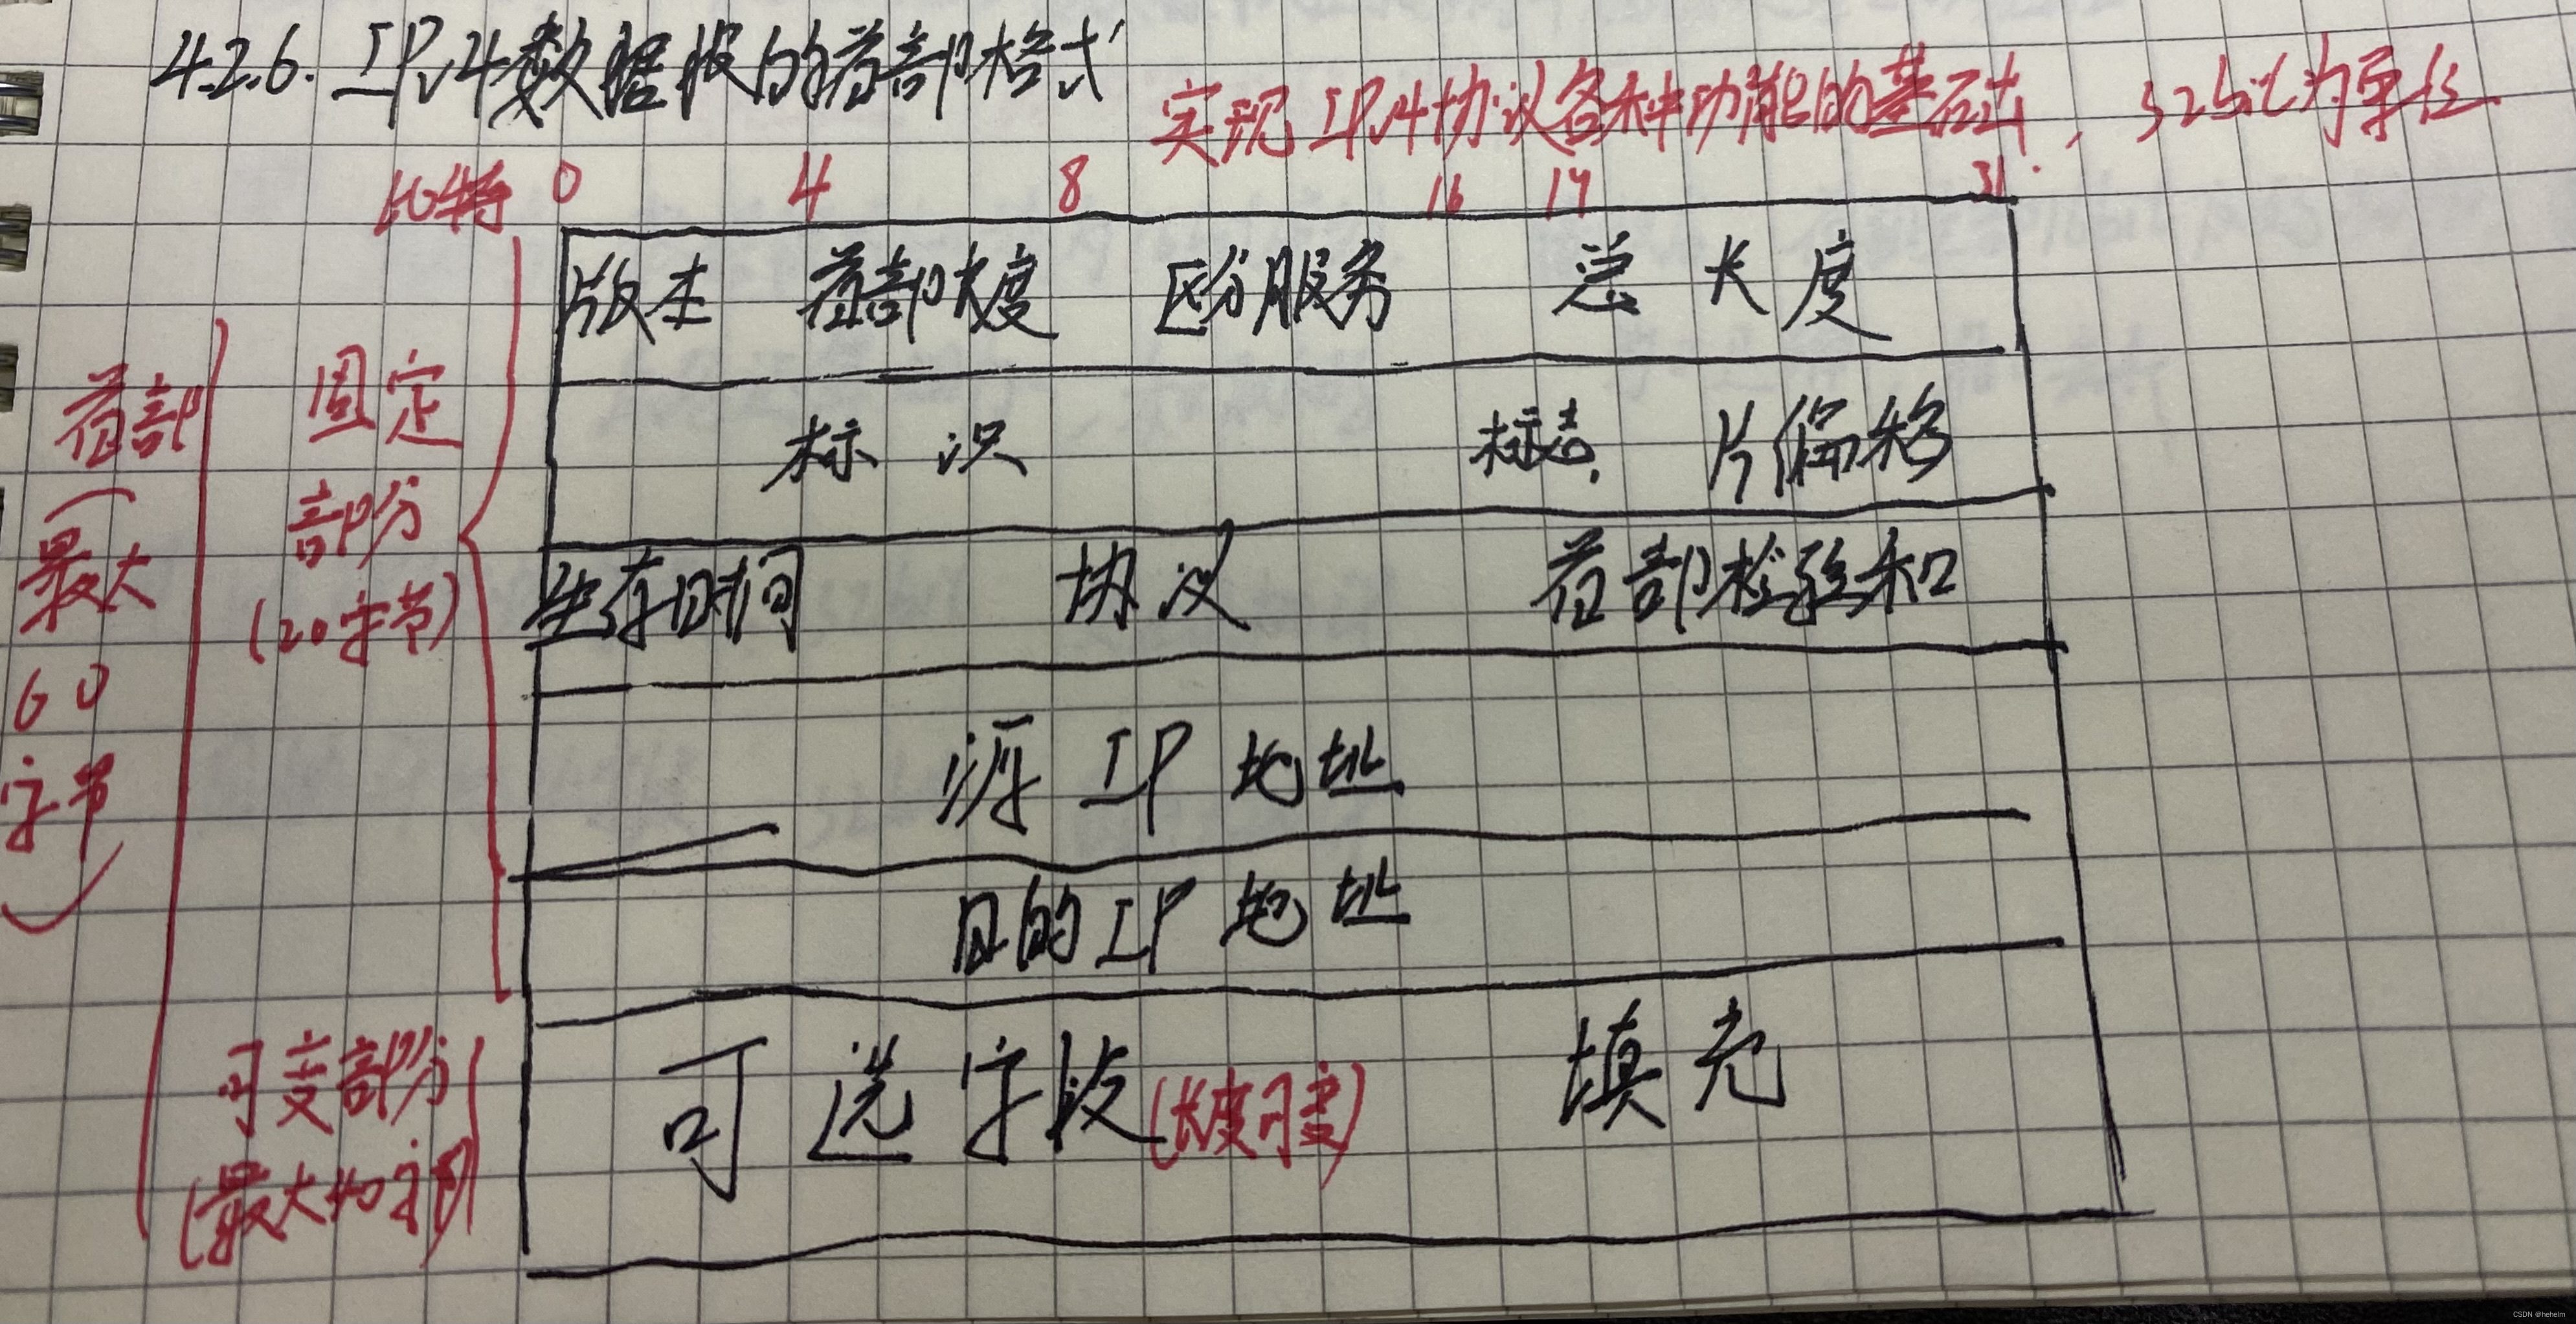 4.2.6. IPv4数据报的首部格式
实现IPv4协议各种功能的基础, 32bit为单位
比特 0 4 8 16 19 31
版本 首部长度 区分服务 总长度
标识 标志 片偏移
生存时间 协议 首部检验和
源IP地址
目的IP地址
可选字段(长度可变) 填充
固定
部分
(20字节)
首部
(最大
60
字节)
可变部分
(最大40字节)
CSDN @heheim